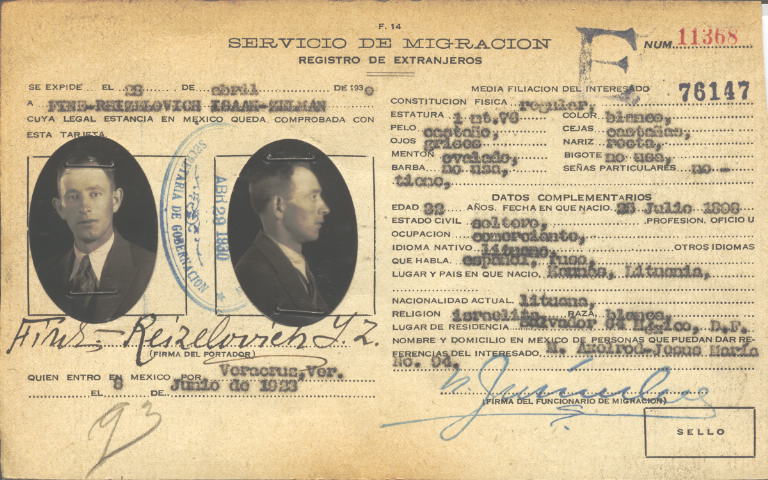 F. 14
SERVICIO DE MIGRACION
REGISTRO DE EXTRANJEROS
NUM. 11368
E
76147
SE EXPIDE EL 28 DE abril DE 1930
A FINE-REIZELOVICH ISAAK-ZELMAN
CUYA LEGAL ESTANCIA EN MEXICO QUEDA COMPROBADA CON
ESTA TARJETA
SECRETARIA DE GOBERNACION
ABR 29 1930
Fine-Reizelovich I. Z.
(FIRMA DEL PORTADOR)
QUIEN ENTRO EN MEXICO POR Veracruz, Ver.
EL 8 DE Junio de 1923
93
MEDIA FILIACION DEL INTERESADO
CONSTITUCION FISICA regular,
ESTATURA 1 mt. 78 COLOR blanco,
PELO castaño, CEJAS castañas,
OJOS grises NARIZ recta,
MENTON ovalado, BIGOTE no usa,
BARBA no usa, SEÑAS PARTICULARES no -
tiene,
DATOS COMPLEMENTARIOS
EDAD AÑOS. FECHA EN QUE NACIO Julio
ESTADO CIVIL soltero, PROFESION, OFICIO U
OCUPACION comerciante,
IDIOMA NATIVO lituano, OTROS IDIOMAS
QUE HABLA. español, ruso,
LUGAR Y PAIS EN QUE NACIO. Kaunas, Lituania,
NACIONALIDAD ACTUAL. lituana,
RELIGION israelita, RAZA blanca,
LUGAR DE RESIDENCIA Salvador 64 México, D.F.
NOMBRE Y DOMICILIO EN MEXICO DE PERSONAS QUE PUEDAN DAR RE-
FERENCIAS DEL INTERESADO. M. Axelrod-Jesus María
No. 94,
(FIRMA DEL FUNCIONARIO DE MIGRACION)
SELLO